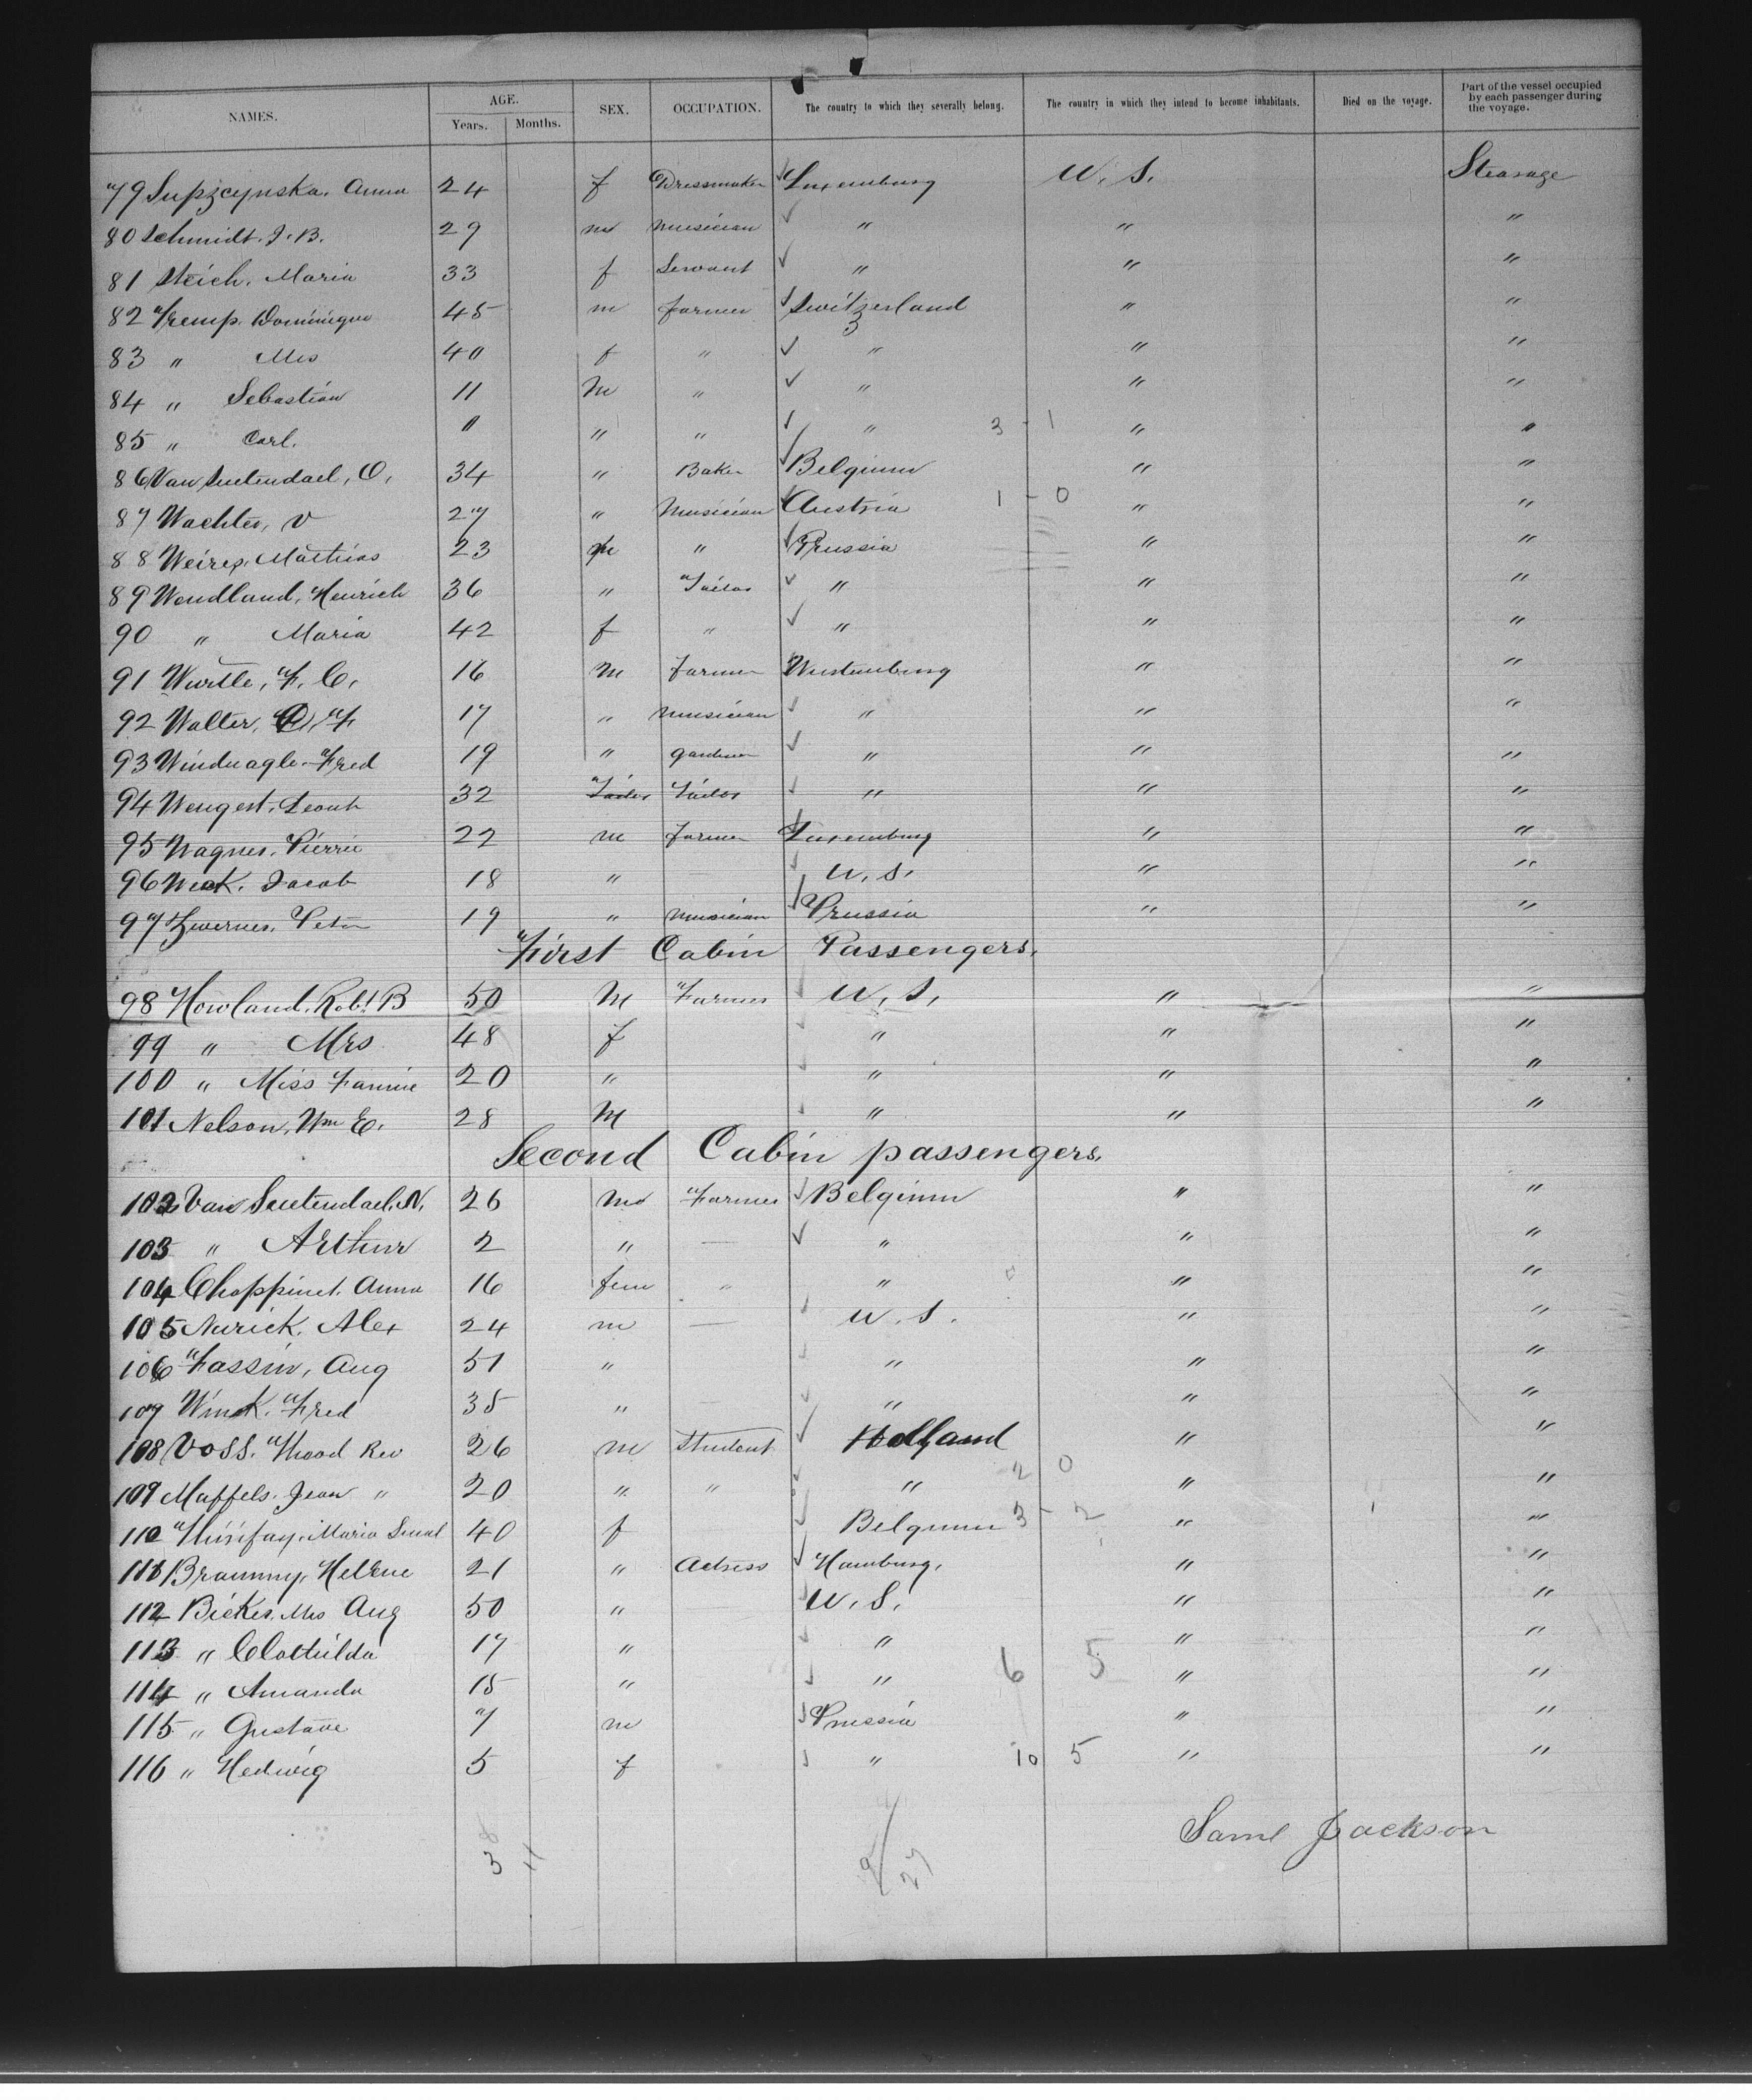 NAMES. AGE. Years. Months. SEX. OCCUPATION. The country to which they severally belong. The country in which they intend to become inhabitants. Died on the voyage. Part of the vessel occupied by each passenger during the voyage.
79 Supzcynska. Anna 24 f Dressmaker Luxemburg U. S. Stearage
80 Schmidt. J. B. 29 m musician " " "
81 Steich. Maria 33 f Servant " " "
82 Tremp. Dominique 45 m farmer Switzerland " "
83 " Mrs 40 f " " " "
84 " Sebastian 11 M " " " "
85 " Carl. " " " 3 - 1 " "
86 Van Suetendael, O. 34 " Baker Belgium " "
87 Wachter, V 27 " Musician Austria 1 - 0 " "
88 Mathias 23 m " Prussia " "
89 Wendland, Heinrich 36 " Tailor " " "
90 " Maria 42 f " " " "
91 Wurtle, F. C. 16 M farmer Wurtemburg " "
92 Walter, F 17 " musician " " "
93 Windnagle. Fred 19 " gardener " " "
94 Wengert. 32 Tailor Tailor " " "
95 Wagner. Pierre 22 m farmer Luxemburg " "
96 Weck. Jacob 18 " U. S. " "
97 Zwerner. Peter 19 " musician Prussia " "
First Cabin Passengers.
98 Howland. Robt B 50 M Farmer U. S. " "
99 " Mrs 48 f " " "
100 " Miss Fannie 20 " " " "
101 Nelson. Wm E. 28 M " " "
Second Cabin passengers.
102 Van Suetendael. N. 26 m Farmer Belgium " "
103 " Arthur 2 " — " " "
104 Choppinet. Anna 16 fem " " " "
105 Nurick. Alex 24 m — U. S. " "
106 Fassin, Aug 51 " " " "
107 Winck. Fred 35 " " " "
108 Voss. Thood Rev 26 m Student Holland " "
109 Maffels. Jean " 20 " " " 2 0 " "
110 Maria 40 f Belgium 3 - 2 " "
111 Brammy, Helene 21 " Actress Hamburg. " "
112 Bicker. Mrs Aug 50 " U. S. " "
113 " Clothilda 17 " " " "
114 " Amanda 15 " " 6 5 " "
115 " Gustave 7 m Prussia " "
116 " Hedwig 5 f " 10 5 " "
Saml Jackson
38 11
9/27